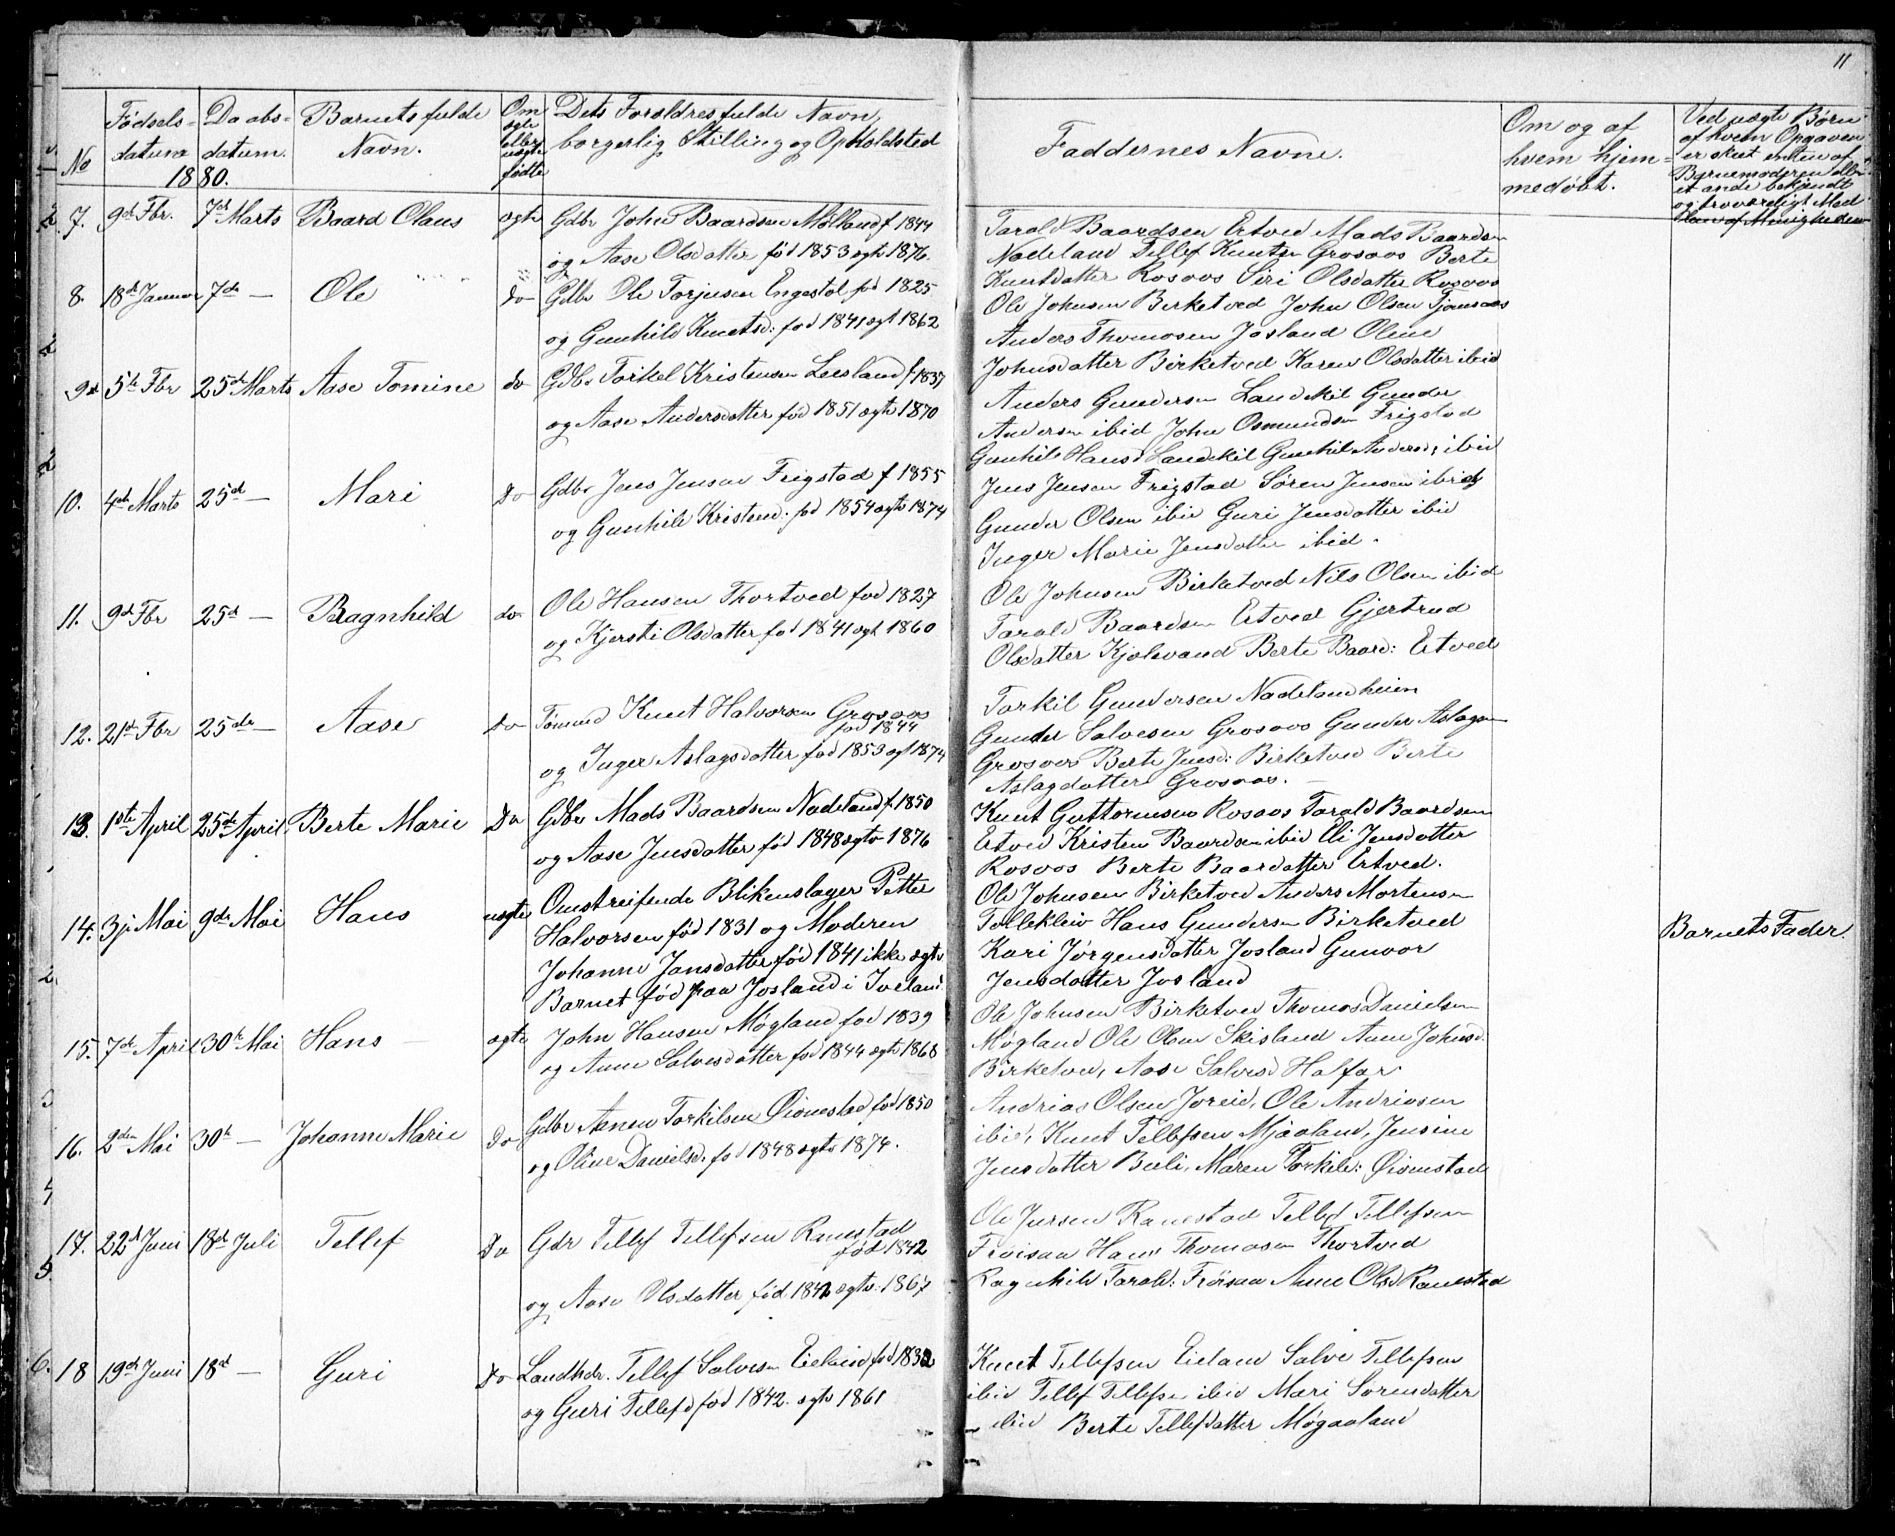 11
No
Fødsels-
datum
Daabs-
datum.
1880.
Barnets fulde
Navn.
Om
ægte
eller
uægte
fødte
Dets Forældres fulde Navn,
borgerlig Stilling og Opholdsted
Faddernes Navne.
Om og af
hvem hjem=
medøbt.
Ved uægte Børn
af hvem Opgaven
er skeet enten af
Barnemoderen eller
et andet bekjendt
og troværdigt Med
7. 9d Fbr. 7d Marts Baard Olaus ægte Gdbr John Baardsen Mølland f 1844
og Aase Olsdatter fød 1853 egt 1876.
Tarald Baardsen Ertved Mads Baardsen
Nadeland Tellef Knutsn Grosoos Berte
Knutsdatter Rosoos Siri Olsdatter Rosoos
8. 18d Januar 7de — Ole do Gdbr Ole Torjusen Engestøl fød 1825
og Gunhild Knutsd: fød 1841 egt 1862
Ole Johnsen Birketved John Olsen
Anders Thomosen Josland Oline
Johnsdatter Birketved Karen Olsdatter ibid
9d 5te Fbr 25d Marts Aase Tomine do Gdbr Torkel Kristensen Leesland f 1837
og Aase Andersdatter fød 1851 egte 1870
Anders Gundersen Landskil Gunder
Andersn ibid John Osmundsn Frigstad
Gunhild Hansd Landskil Gunhil Andersd; ibid
10. 4de Marts 25d — Mari Do Gdbr Jens Jensen Frigstad f 1855
og Gunhild Kristend. fød 1854 egte 1874
Jens Jensen Frigstad Søren Jensen ibid og
Gunder Olsen ibid Guri Jensdatter ibid
Inger Marie Jensdatter ibid.
11. 9d Fbr 25d — Ragnhild do Ole Hansen Thortved fød 1827
og Kjersti Olsdatter fød 1841 egt 1860
Ole Johnsen Birketved Nils Olsen ibid
Tarald Baardsen Ertved Gjertrud
Olsdatter Kjølevand Berte Baard: Ertved
12. 21d Fbr 25de — Aase Do Knut Halvorsen Grosoos
fød 1844
og Inger Aslagsdatter fød 1853 egt 1874
Torkil Gundersen Nadelandheien
Gunder Salvesen Grosoos Gunder Aslagsn
Grosoos Berte Jensd: Birketved Berte
Aslagdatter Grosoos. —
13. 1ste April 25d April. Berte Marie Do Gdbr Mads Baardsen Nadeland f. 1850
og Aase Jensdatter fød 1848 egte 1876
Knut Guttormsen Rosoos Tarald Baardsen
Ertved Kristen Baardsen ibid Eli Jensdatter
Rosoos Berte Baardatter Ertved.
14. 3j Mai 9de Mai Hans uægte Omstreifende Blikenslager Petter
Halvorsen fød 1831 og Moderen
Johanne Jansdatter fød 1841 ikke egte
Barnet fød paa Josland i Iveland.
Ole Johnsen Birketved Anders Mortensen
Tolleklev Hans Gundersen Birketved
Kari Jørgensdatter Josland Gunvor
Jensdatter Josland
Barnets Fader.
15. 7de April 30te Mai Hans ægte John Hansen Møgland fød 1839
og Anne Salvesdatter fød 1844 egte 1868
Ole Johnsen Birketved Thomas Danielsen
Møgland Ole Olsen Skisland Anne Johnsd.
Birketved, Aase Salvesd Halfar.
16. 2den Mai 30te — Johanne Marie Do Gdbr Asnen Torkilsen Øionestad fød 1850
og Oline Danielsd. fød 1848 egte 1874.
Andrias Olsen Joreid, Ole Andriasen
ibid, Knut Tellefsen Mjaaland, Jensine
Jensdatter Beeli, Maren Torkild: Øionestad
17. 22d Juni 18d Juli Tellef Do Gdr Tellef Tellefsen Ranestad
fød 1842
og Aase Olsdatter fød 1842 egte 1867
Ole Jursen Ranestad Tellef Tellefsen
Frøisaa Hans Thomasen Thortved
Ragnhild Tarald: Frøisaa Anne Olsd Ranestad
18 19de Juni 18d — Guri Do Landhdr. Tellef Salvesn Eieland fød 1832
og Guri Tellefsd fød 1842. egte 1861
Knut Tellefsen Eieland Salve Tellefsen
ibid Tellef Tellefsn ibid Mari Sorensdatter
ibid Berte Tellefsdatter Møgaaland